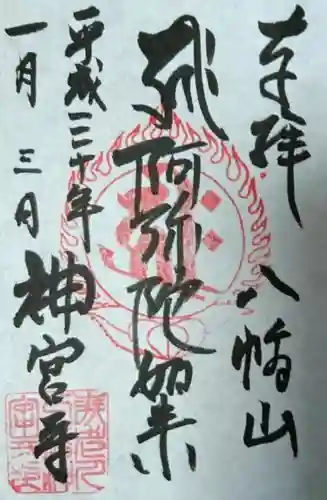 奉拝 八幡山
阿弥陀如来
平成三十年
一月三日
神宮寺